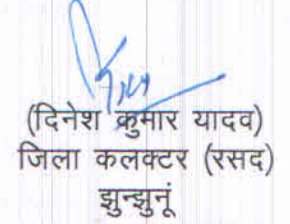 (दिनेश कुमार यादव)
जिला कलक्टर (रसद)
झुन्झुनूं